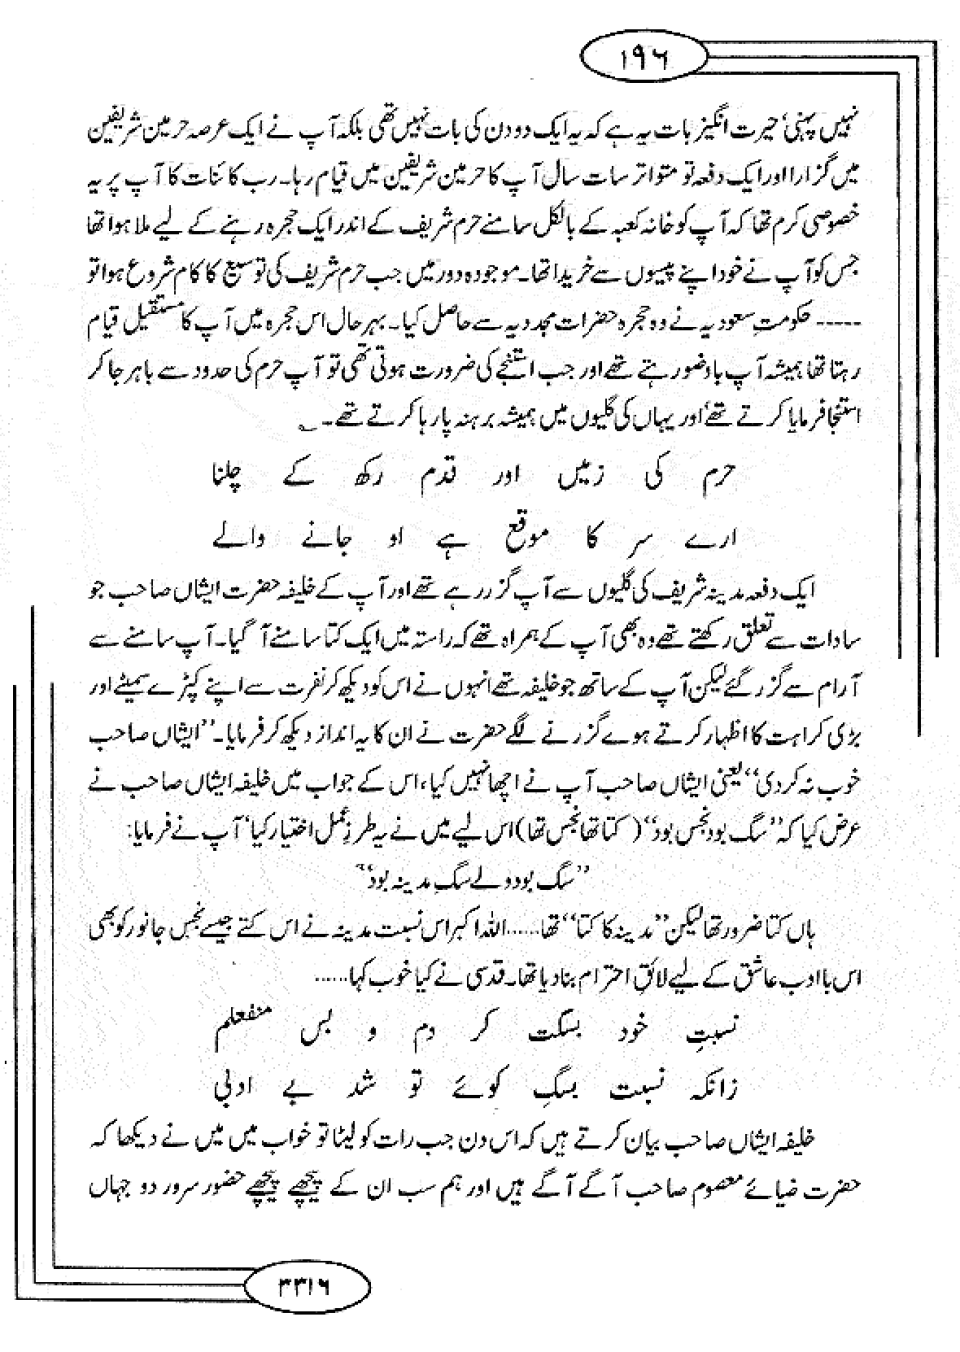 ۱۹۶
نہیں پہنی‘ حیرت انگیز بات یہ ہے کہ یہ ایک دو دن کی بات نہیں تھی بلکہ آپ نے ایک عرصہ حرمین شریفین
میں گزارا اور ایک دفعہ تو متواتر سات سال آپ کا حرمین شریفین میں قیام رہا۔ رب کائنات کا آپ پر یہ
خصوصی کرم تھا کہ آپ کو خانہ کعبہ کے بالکل سامنے حرم شریف کے اندر ایک حجرہ رہنے کے لیے ملا ہوا تھا
جس کو آپ نے خود اپنے پیسوں سے خریدا تھا۔ موجودہ دور میں جب حرم شریف کی توسیع کا کام شروع ہوا تو
----- حکومتِ سعودیہ نے وہ حجرہ حضرات مجددیہ سے حاصل کیا۔ بہرحال اس حجرہ میں آپ کا مستقبل قیام
رہتا تھا ہمیشہ آپ باوضو رہتے تھے اور جب استنجے کی ضرورت ہوتی تھی تو آپ حرم کی حدود سے باہر جا کر
استنجا فرمایا کرتے تھے‘ اور یہاں کی گلیوں میں ہمیشہ برہنہ پا رہا کرتے تھے۔ ؎
حرم کی زمیں اور قدم رکھ کے چلنا
ارے سر کا موقع ہے او جانے والے
ایک دفعہ مدینہ شریف کی گلیوں سے آپ گزر رہے تھے اور آپ کے خلیفہ حضرت ایشاں صاحب جو
سادات سے تعلق رکھتے تھے وہ بھی آپ کے ہمراہ تھے کہ راستہ میں ایک کتا سامنے آ گیا۔ آپ سامنے سے
آرام سے گزر گئے لیکن آپ کے ساتھ جو خلیفہ تھے انہوں نے اس کو دیکھ کر نفرت سے اپنے کپڑے سمیٹے اور
بڑی کراہت کا اظہار کرتے ہوے گزرنے لگے حضرت نے ان کا یہ انداز دیکھ کر فرمایا۔ ”ایشاں صاحب
خوب نہ کردی“ یعنی ایشاں صاحب آپ نے اچھا نہیں کیا، اس کے جواب میں خلیفہ ایشاں صاحب نے
عرض کیا کہ ”سگ بود نجس بود“ (کتا تھا نجس تھا) اس لیے میں نے یہ طرزِ عمل اختیار کیا‘ آپ نے فرمایا:
”سگ بود ولے سگِ مدینہ بود“
ہاں کتا ضرور تھا لیکن ”مدینہ کا کتا“ تھا...... اللہ اکبر اس نسبت مدینہ نے اس کتے جیسے نجس جانور کو بھی
اس باادب عاشق کے لیے لائقِ احترام بنا دیا تھا۔ قدسی نے کیا خوب کہا......
نسبتِ خود بسگت کر دم و بس منفعلم
زانکہ نسبت بسگِ کوئے تو شد بے ادبی
خلیفہ ایشاں صاحب بیان کرتے ہیں کہ اس دن جب رات کو لیٹا تو خواب میں میں نے دیکھا کہ
حضرت ضیائے معصوم صاحب آگے آگے ہیں اور ہم سب ان کے پیچھے پیچھے حضور سرور دو جہاں
۳۳۱۶